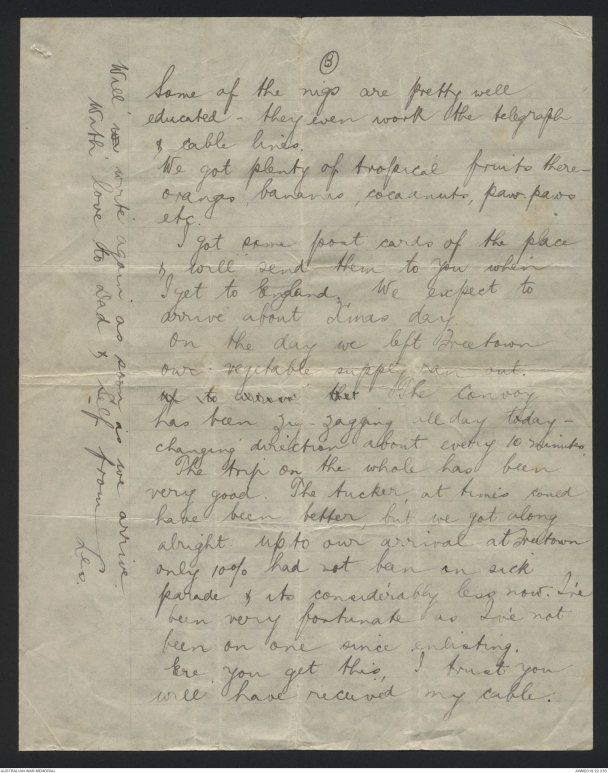 (3)
Some of the nigs are pretty well
educated - they even work the telegraph
& cable lines.
We got plenty of tropical fruits there -
oranges, bananas, cocoanuts, paw-paws
etc.
I got some post cards of the place
& will send them to you when
I get to England. We expect to
arrive about Xmas day.
On the day we left Freetown
our vegetable supply ran out.
The Convoy
has been zig-zagging all day today -
changing direction about every 10 minutes.
The trip on the whole has been
very good. The tucker, at times could
have been better, but we got along
alright. Up to our arrival at Freetown
only 10% had not been on sick
parade & its considerably less now. I've
been very fortunate as I've not
been on one since enlisting.
Ere you get this, I trust you
will have received my cable.
Will write again as soon as we arrive
With love to Dad & self from
Les.
AUSTRALIAN WAR MEMORIAL
AWM2018.22.270